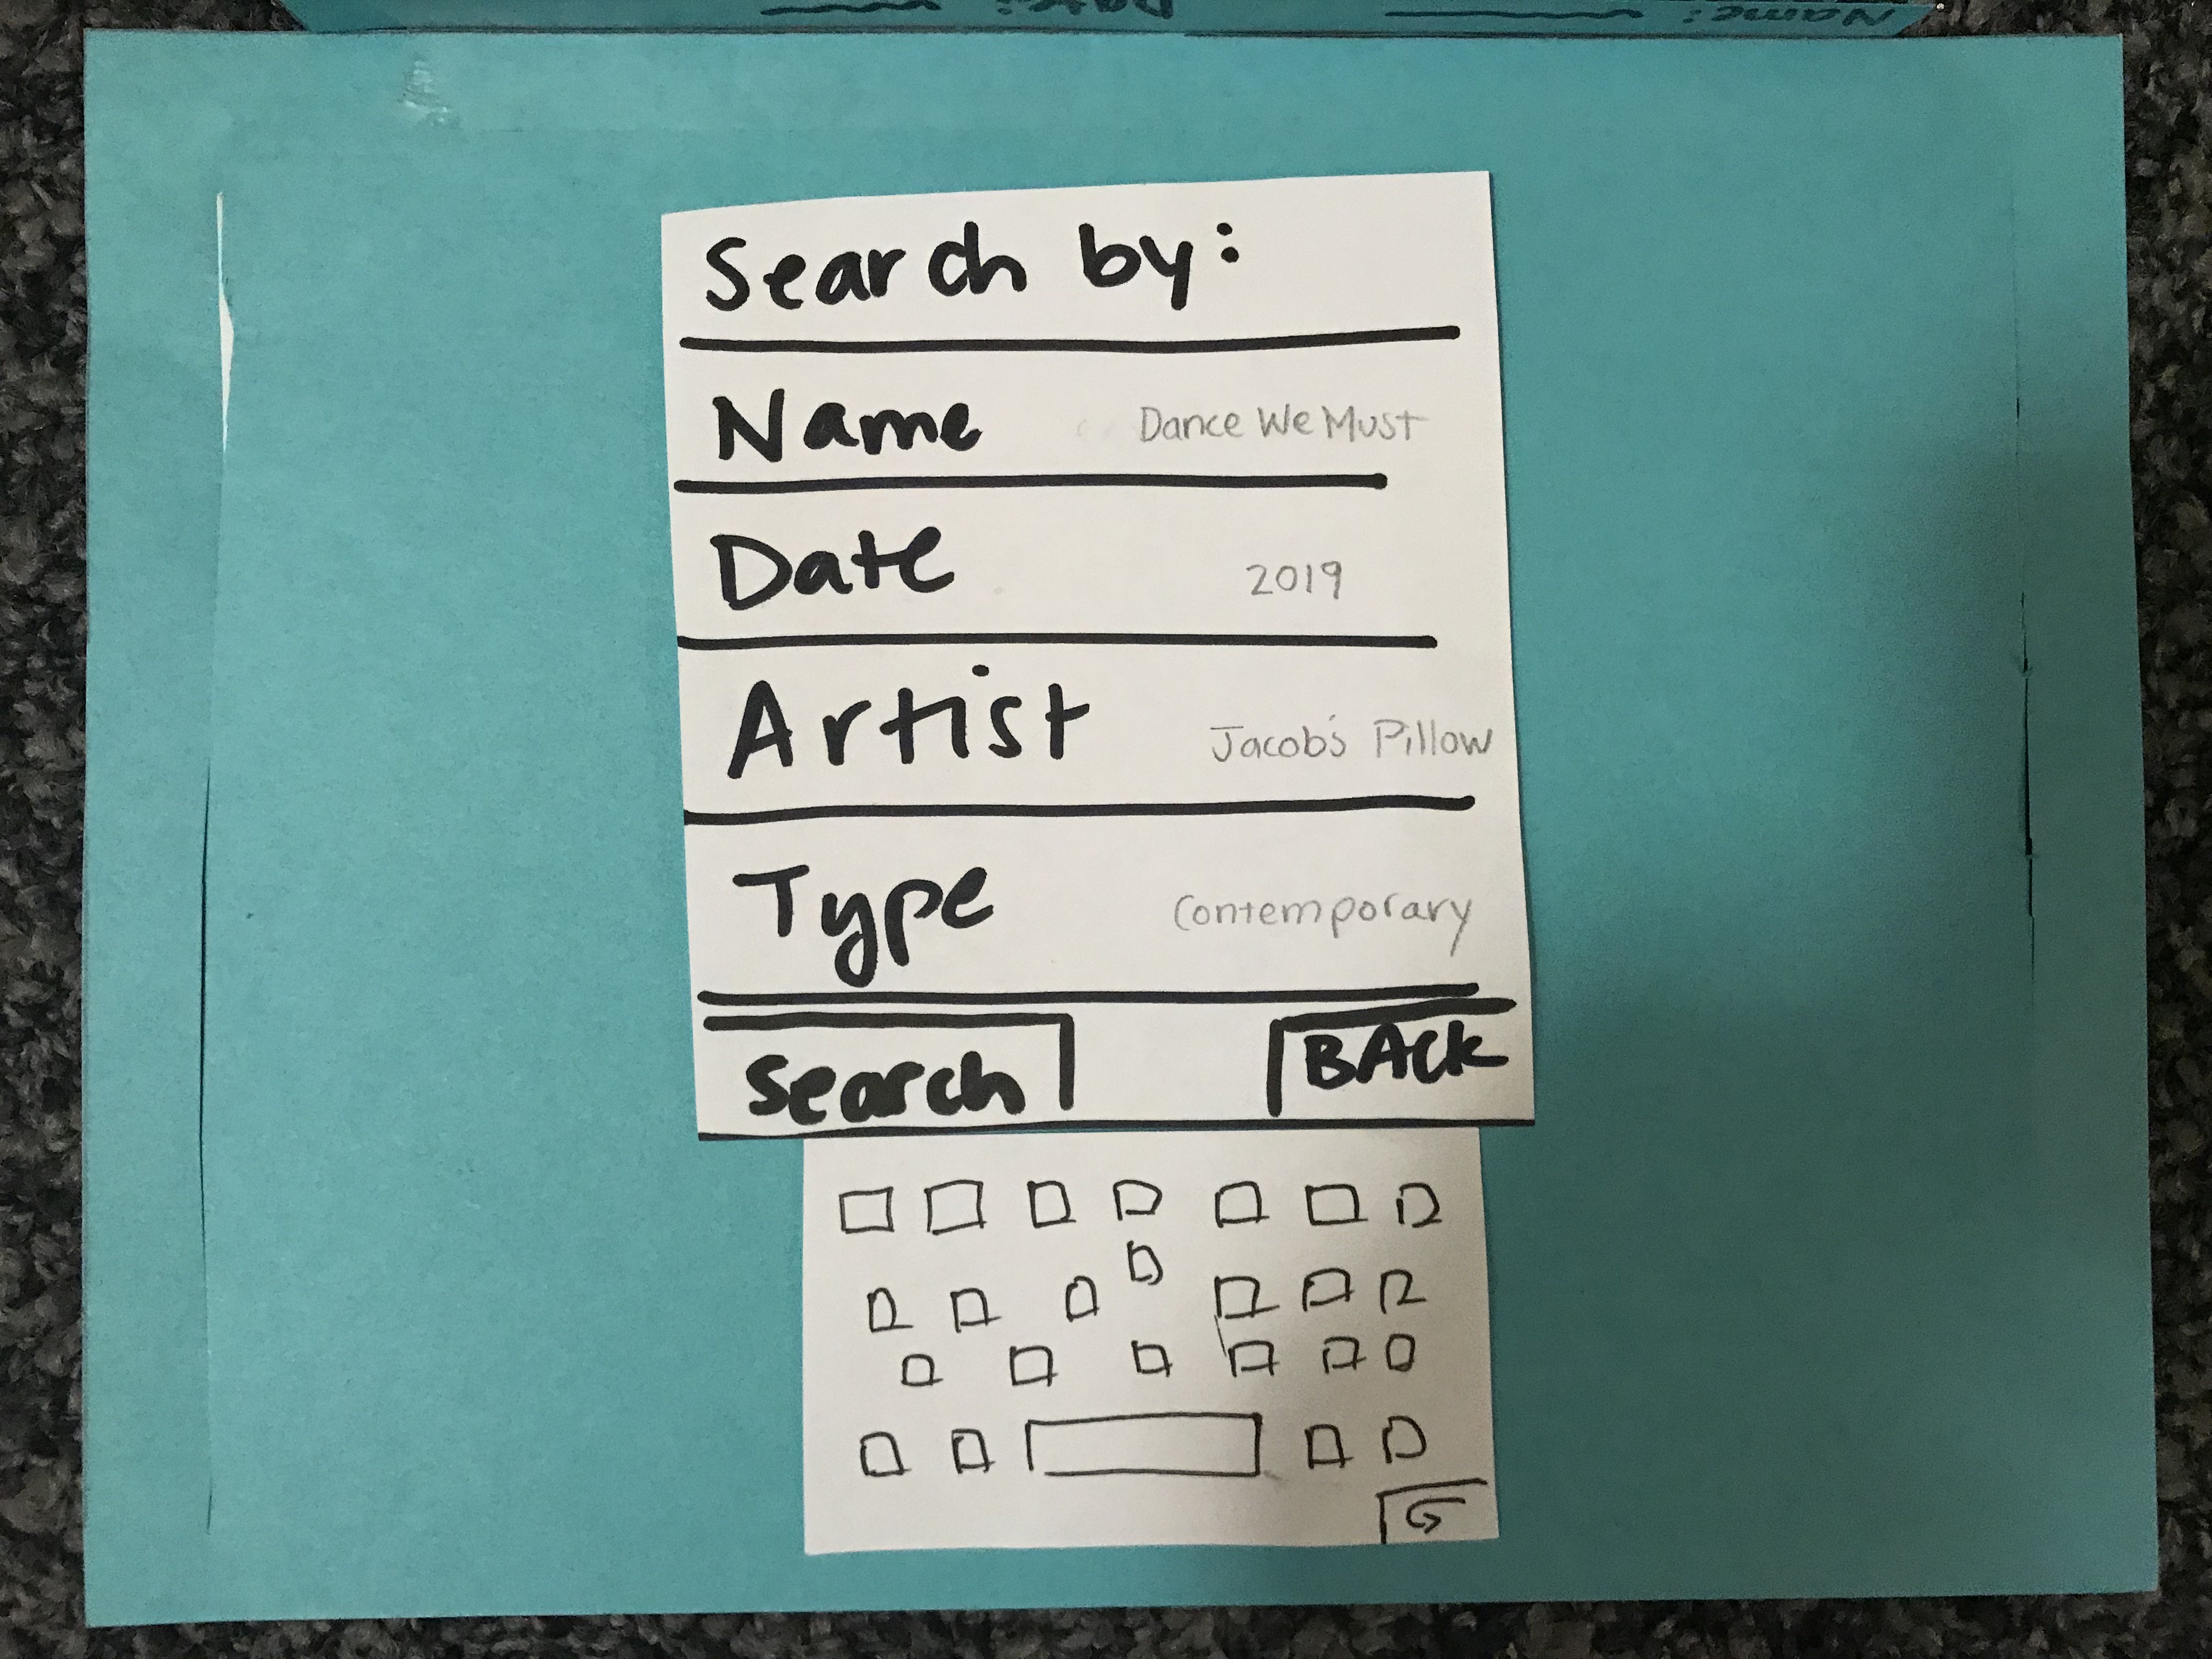 Date:
Name:
Search by:
Name Dance We Must
Date 2019
Artist Jacob's Pillow
Type Contemporary
Search BACK